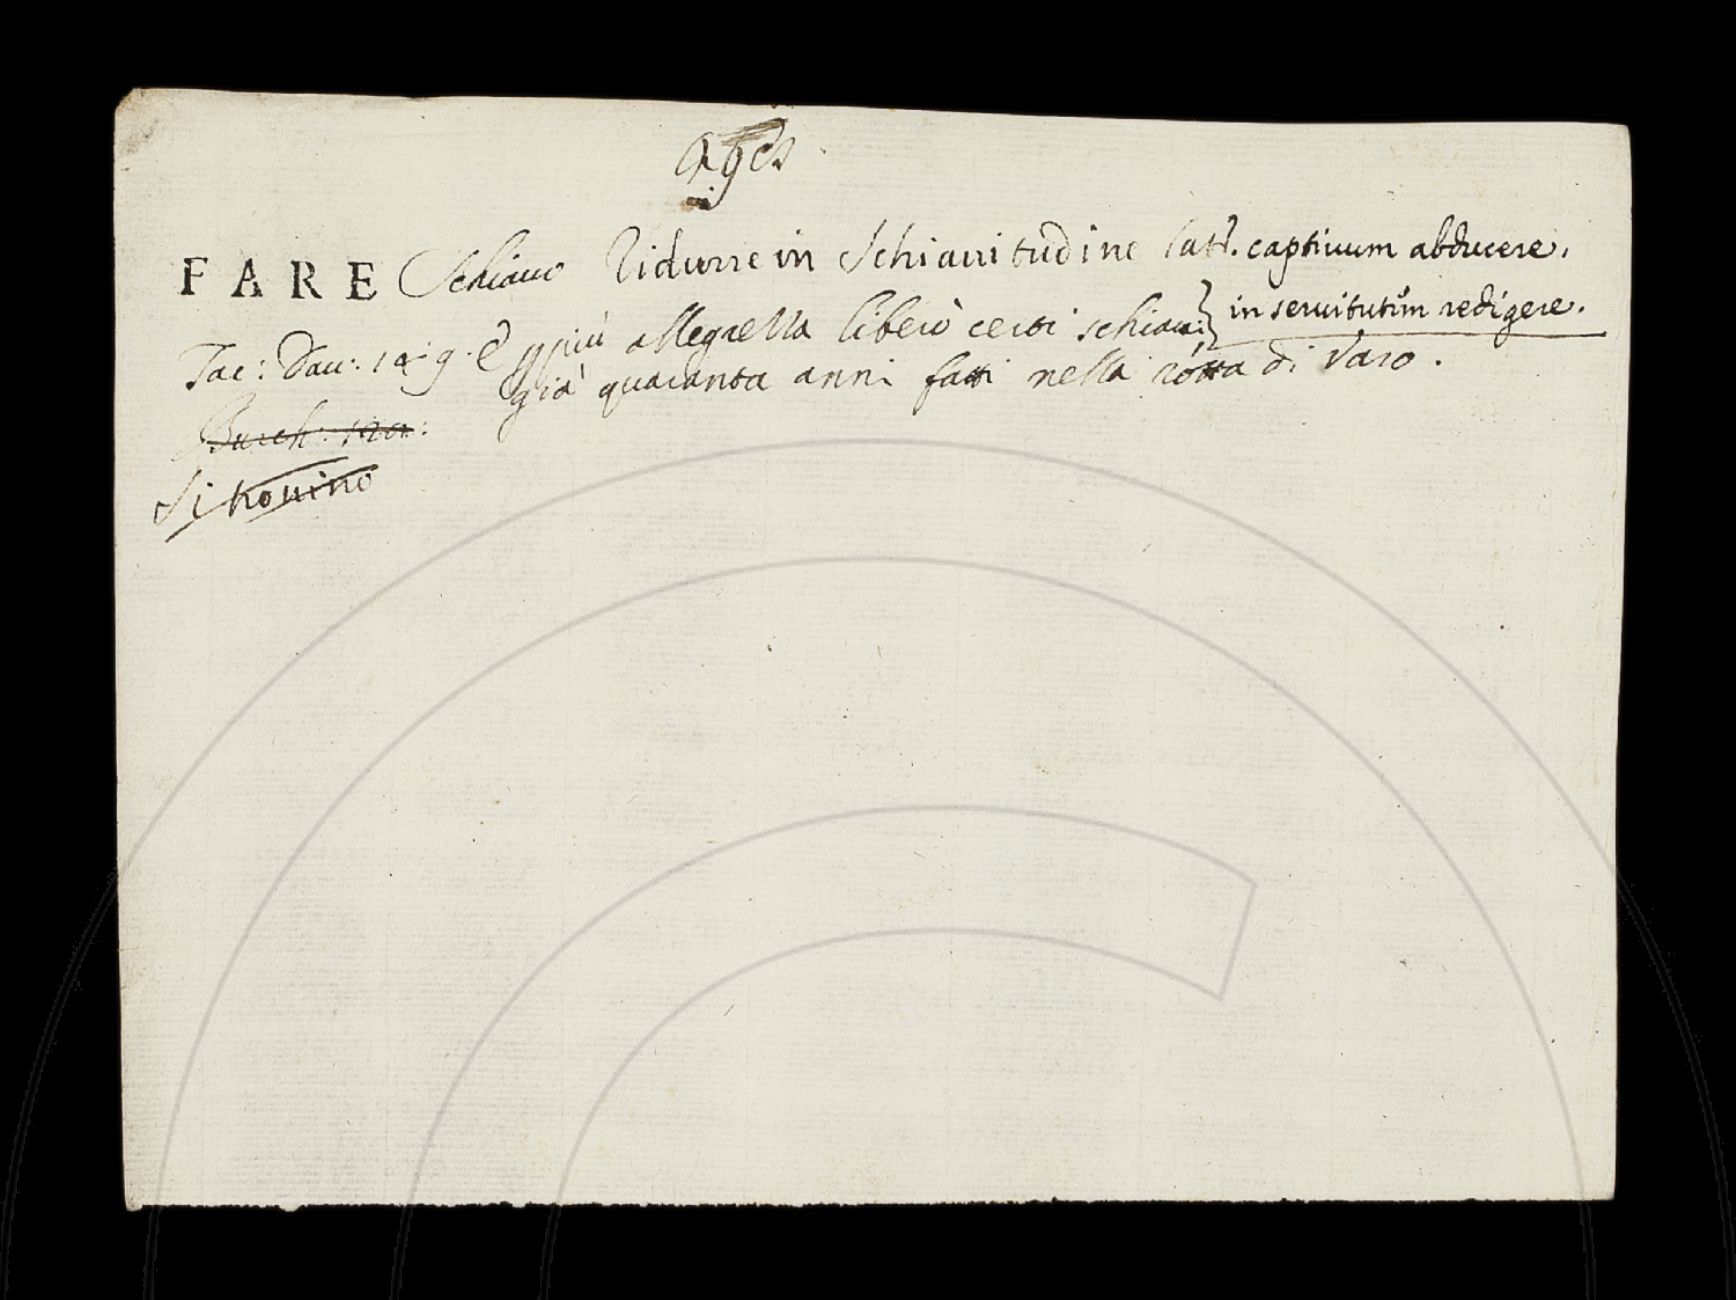 FARE Schiauo Ridurre in Schiauitudine Lat. captiuum abducere.
in seruitutem redigere.
Tac: Dau: E ppiù allegrezza liberò certi schiaui
già quaranta anni fatti nella rotta di Varo.
Burch:
Si rouino